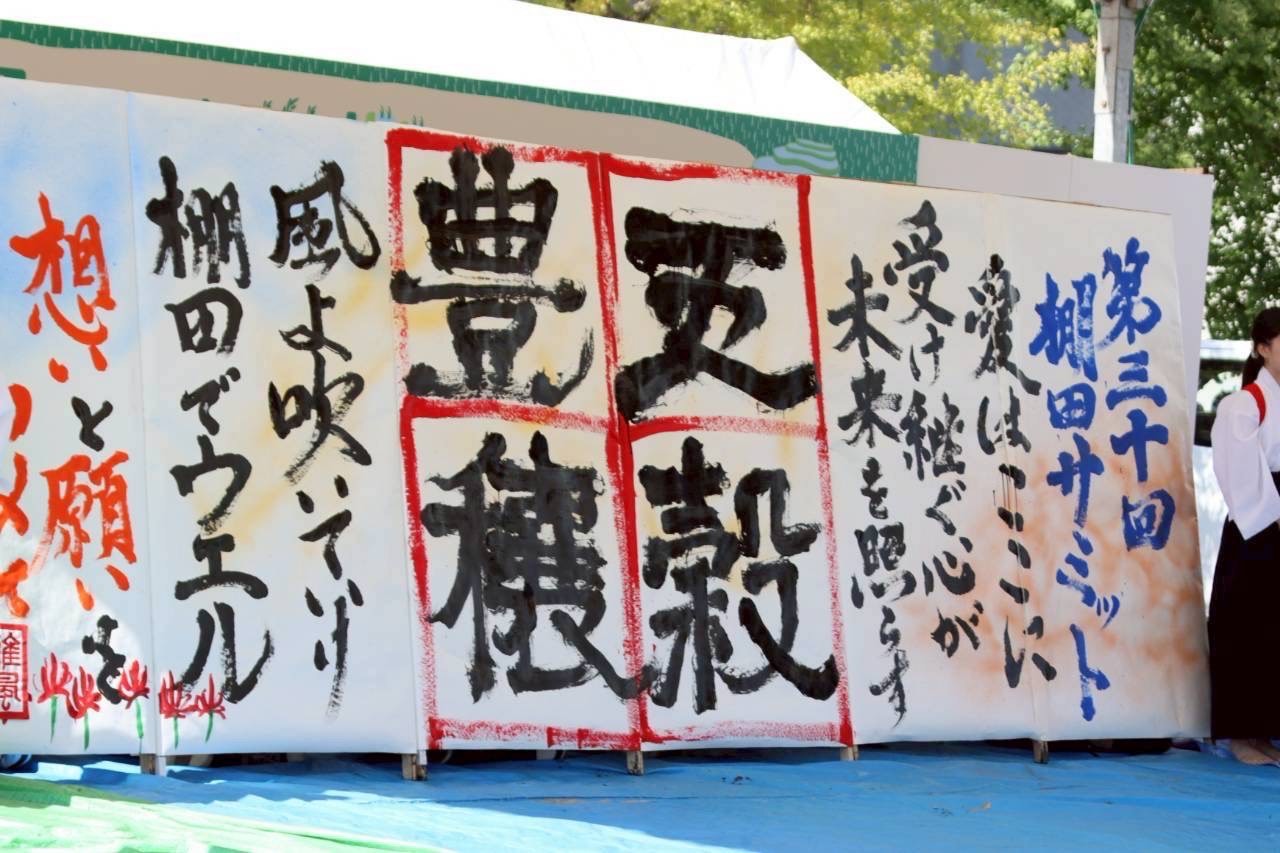 第三十回
棚田サミット
愛はここに
受け継ぐ心が
未来を照らす
五穀
豊穣
風よ吹いていけ
棚田でウェル
想いと願いを
ノメて